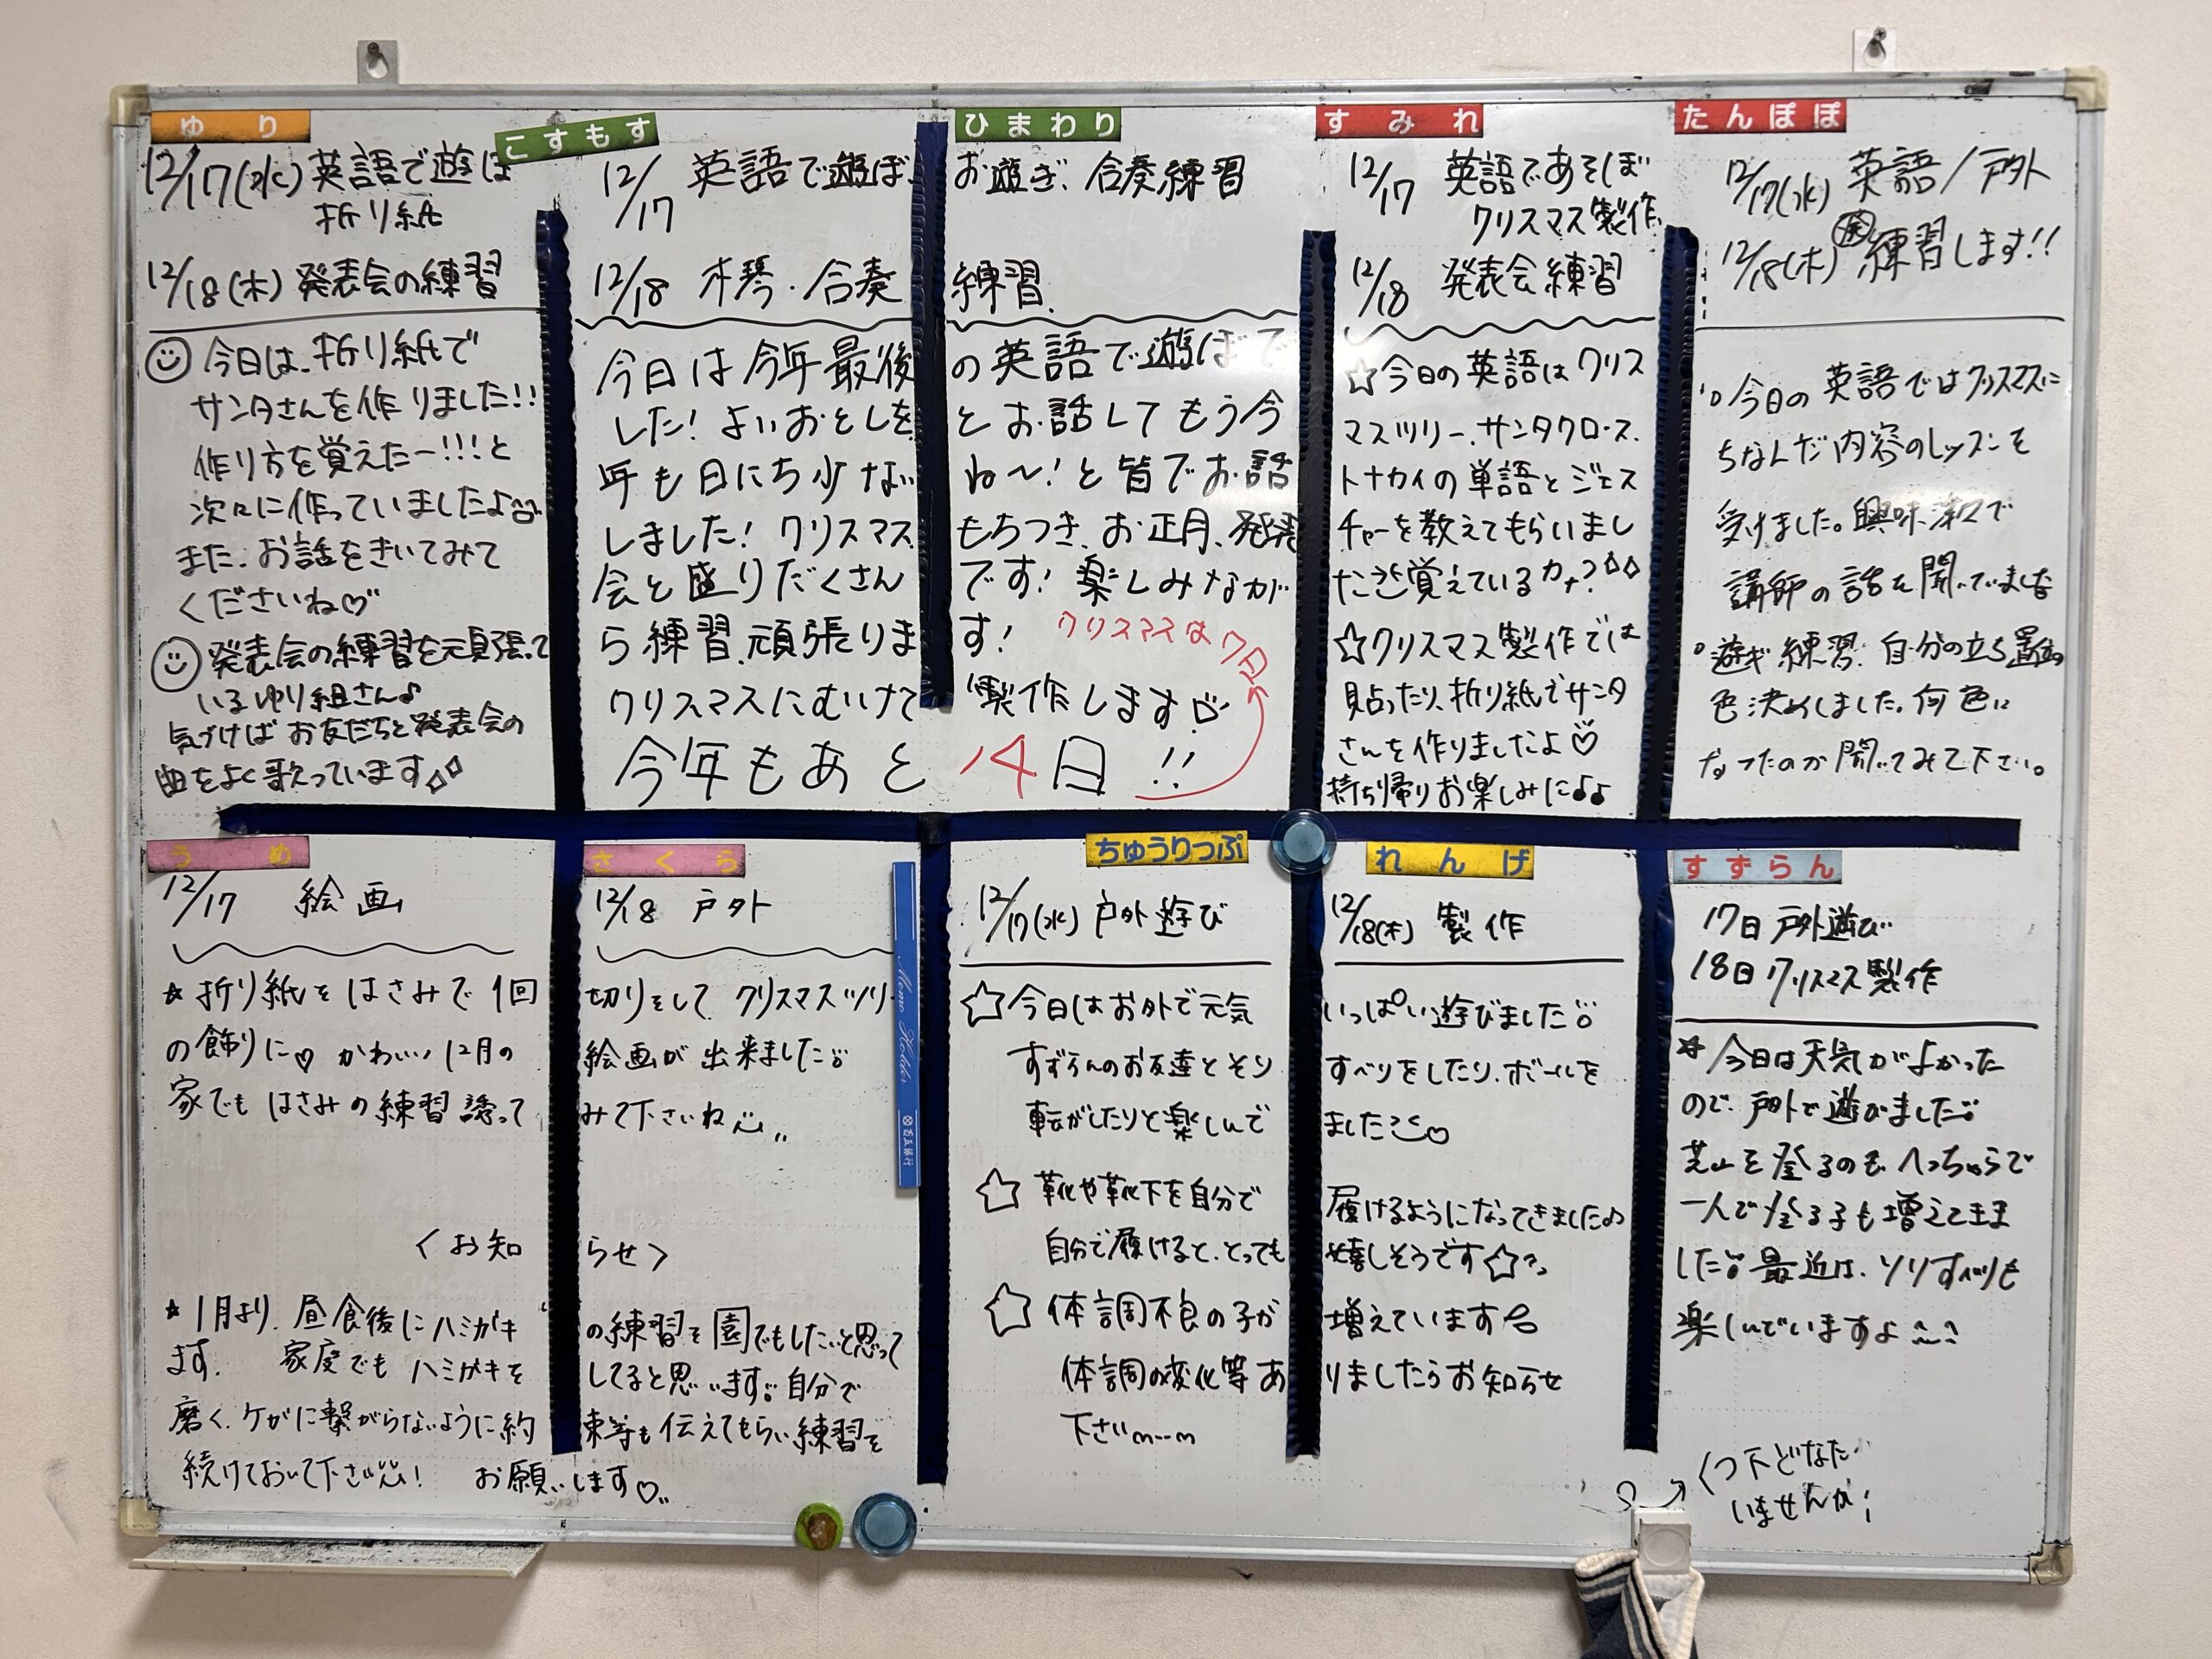 ゆり
12/17(水) 英語で遊ぼ
折り紙
12/18(木) 発表会の練習
今日は、折り紙で
サンタさんを作りました!!
作り方を覚えたー!!!と
次々に作っていましたよ
また、お話をきいてみて
くださいね♡
発表会の練習を頑張って
いるゆり組さん♪
気づけばお友だちと発表会の
曲をよく歌っています
こすもす ひまわり
12/17 英語で遊ぼ、お遊ぎ、合奏練習
12/18 木琴・合奏練習.
今日は今年最後の英語で遊ぼで
した! よいおとしをとお話してもう今
年も日にち少ないね〜!と皆でお話
しました! クリスマス、もちつき、お正月、発表
会と盛りだくさんです! 楽しみなが
ら練習、頑張ります!
クリスマスにむけて製作します♡
クリスマスは7日
今年もあと14日!!
すみれ
12/17 英語であそぼ
クリスマス製作
12/18 発表会練習
☆今日の英語はクリス
マスツリー、サンタクロース、
トナカイの単語とジェス
チャーを教えてもらいまし
た 覚えているカナ?
☆クリスマス製作では
貼ったり、折り紙でサンタ
さんを作りましたよ♡
持ち帰りお楽しみに♪♪
たんぽぽ
12/17(水) 英語/戸外
12/18(木) 練習します!!
今日の英語ではクリスマスに
ちなんだ内容のレッスンを
受けました。興味津々で
講師の話を聞いていました
遊ぎ練習: 自分の立ち置
色決めしました。何色に
なったのか聞いてみて下さい。
うめ さくら
12/17 絵画
12/18 戸外
★折り紙をはさみで1回切りをして クリスマスツリー
の飾りに♡ かわいい12月の絵画が出来ました
家でもはさみの練習誘ってみて下さいね
〈お知らせ〉
★1月より、昼食後にハミガキの練習を園でもしたいと思って
ます。 家庭でもハミガキをしてると思います。自分で
磨く、ケガに繋がらないように約束等も伝えてもらい練習を
続けておいて下さい! お願いします♡
Memo Holder
百五銀行
ちゅうりっぷ れんげ
12/17(水) 戸外遊び
12/18(木) 製作
☆今日はお外で元気いっぱい遊びました
すずらんのお友達とそりすべりをしたり、ボールを
転がしたりと楽しんでました♡
☆靴や靴下を自分で履けるようになってきました♪
自分で履けると、とっても嬉しそうです☆
☆体調不良の子が増えています
体調の変化等ありましたらお知らせ
下さいm--m
すずらん
17日 戸外遊び
18日 クリスマス製作
★今日は天気がよかった
ので、戸外で遊びました
芝山を登るのもへっちゃらで
一人で登る子も増えてきま
した 最近は、ソリすべりも
楽しんでいますよ
くつ下どなたか
いませんか